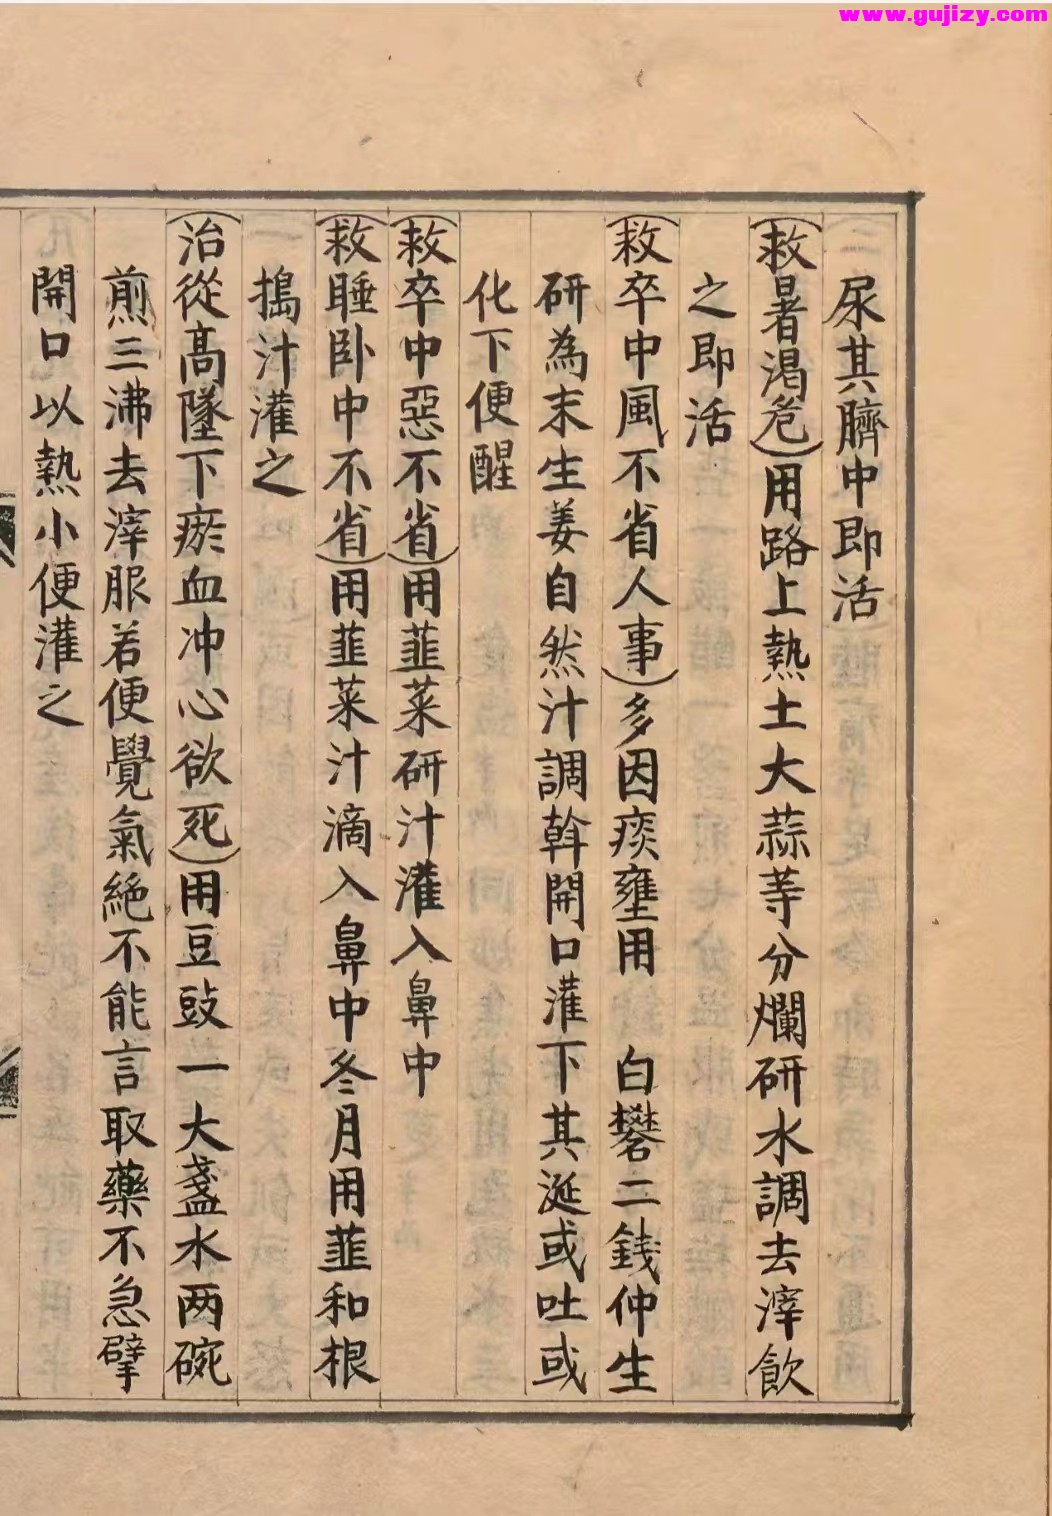 www.gujizy.com
尿其臍中即活
(救暑渴危)用路上熱土大蒜等分爛研水調去滓飲
之即活
(救卒中風不省人事)多因痰壅用 白礬二錢仲生
研為末生姜自然汁調斡開口灌下其涎或吐或
化下便醒
(救卒中惡不省)用韮菜研汁灌入鼻中
(救睡卧中不省)用韮菜汁滴入鼻中冬月用韮和根
搗汁灌之
(治從高墜下瘀血冲心欲死)用豆豉一大盞水两碗
煎三沸去滓服若便覺氣絶不能言取藥不急擘
開口以熱小便灌之